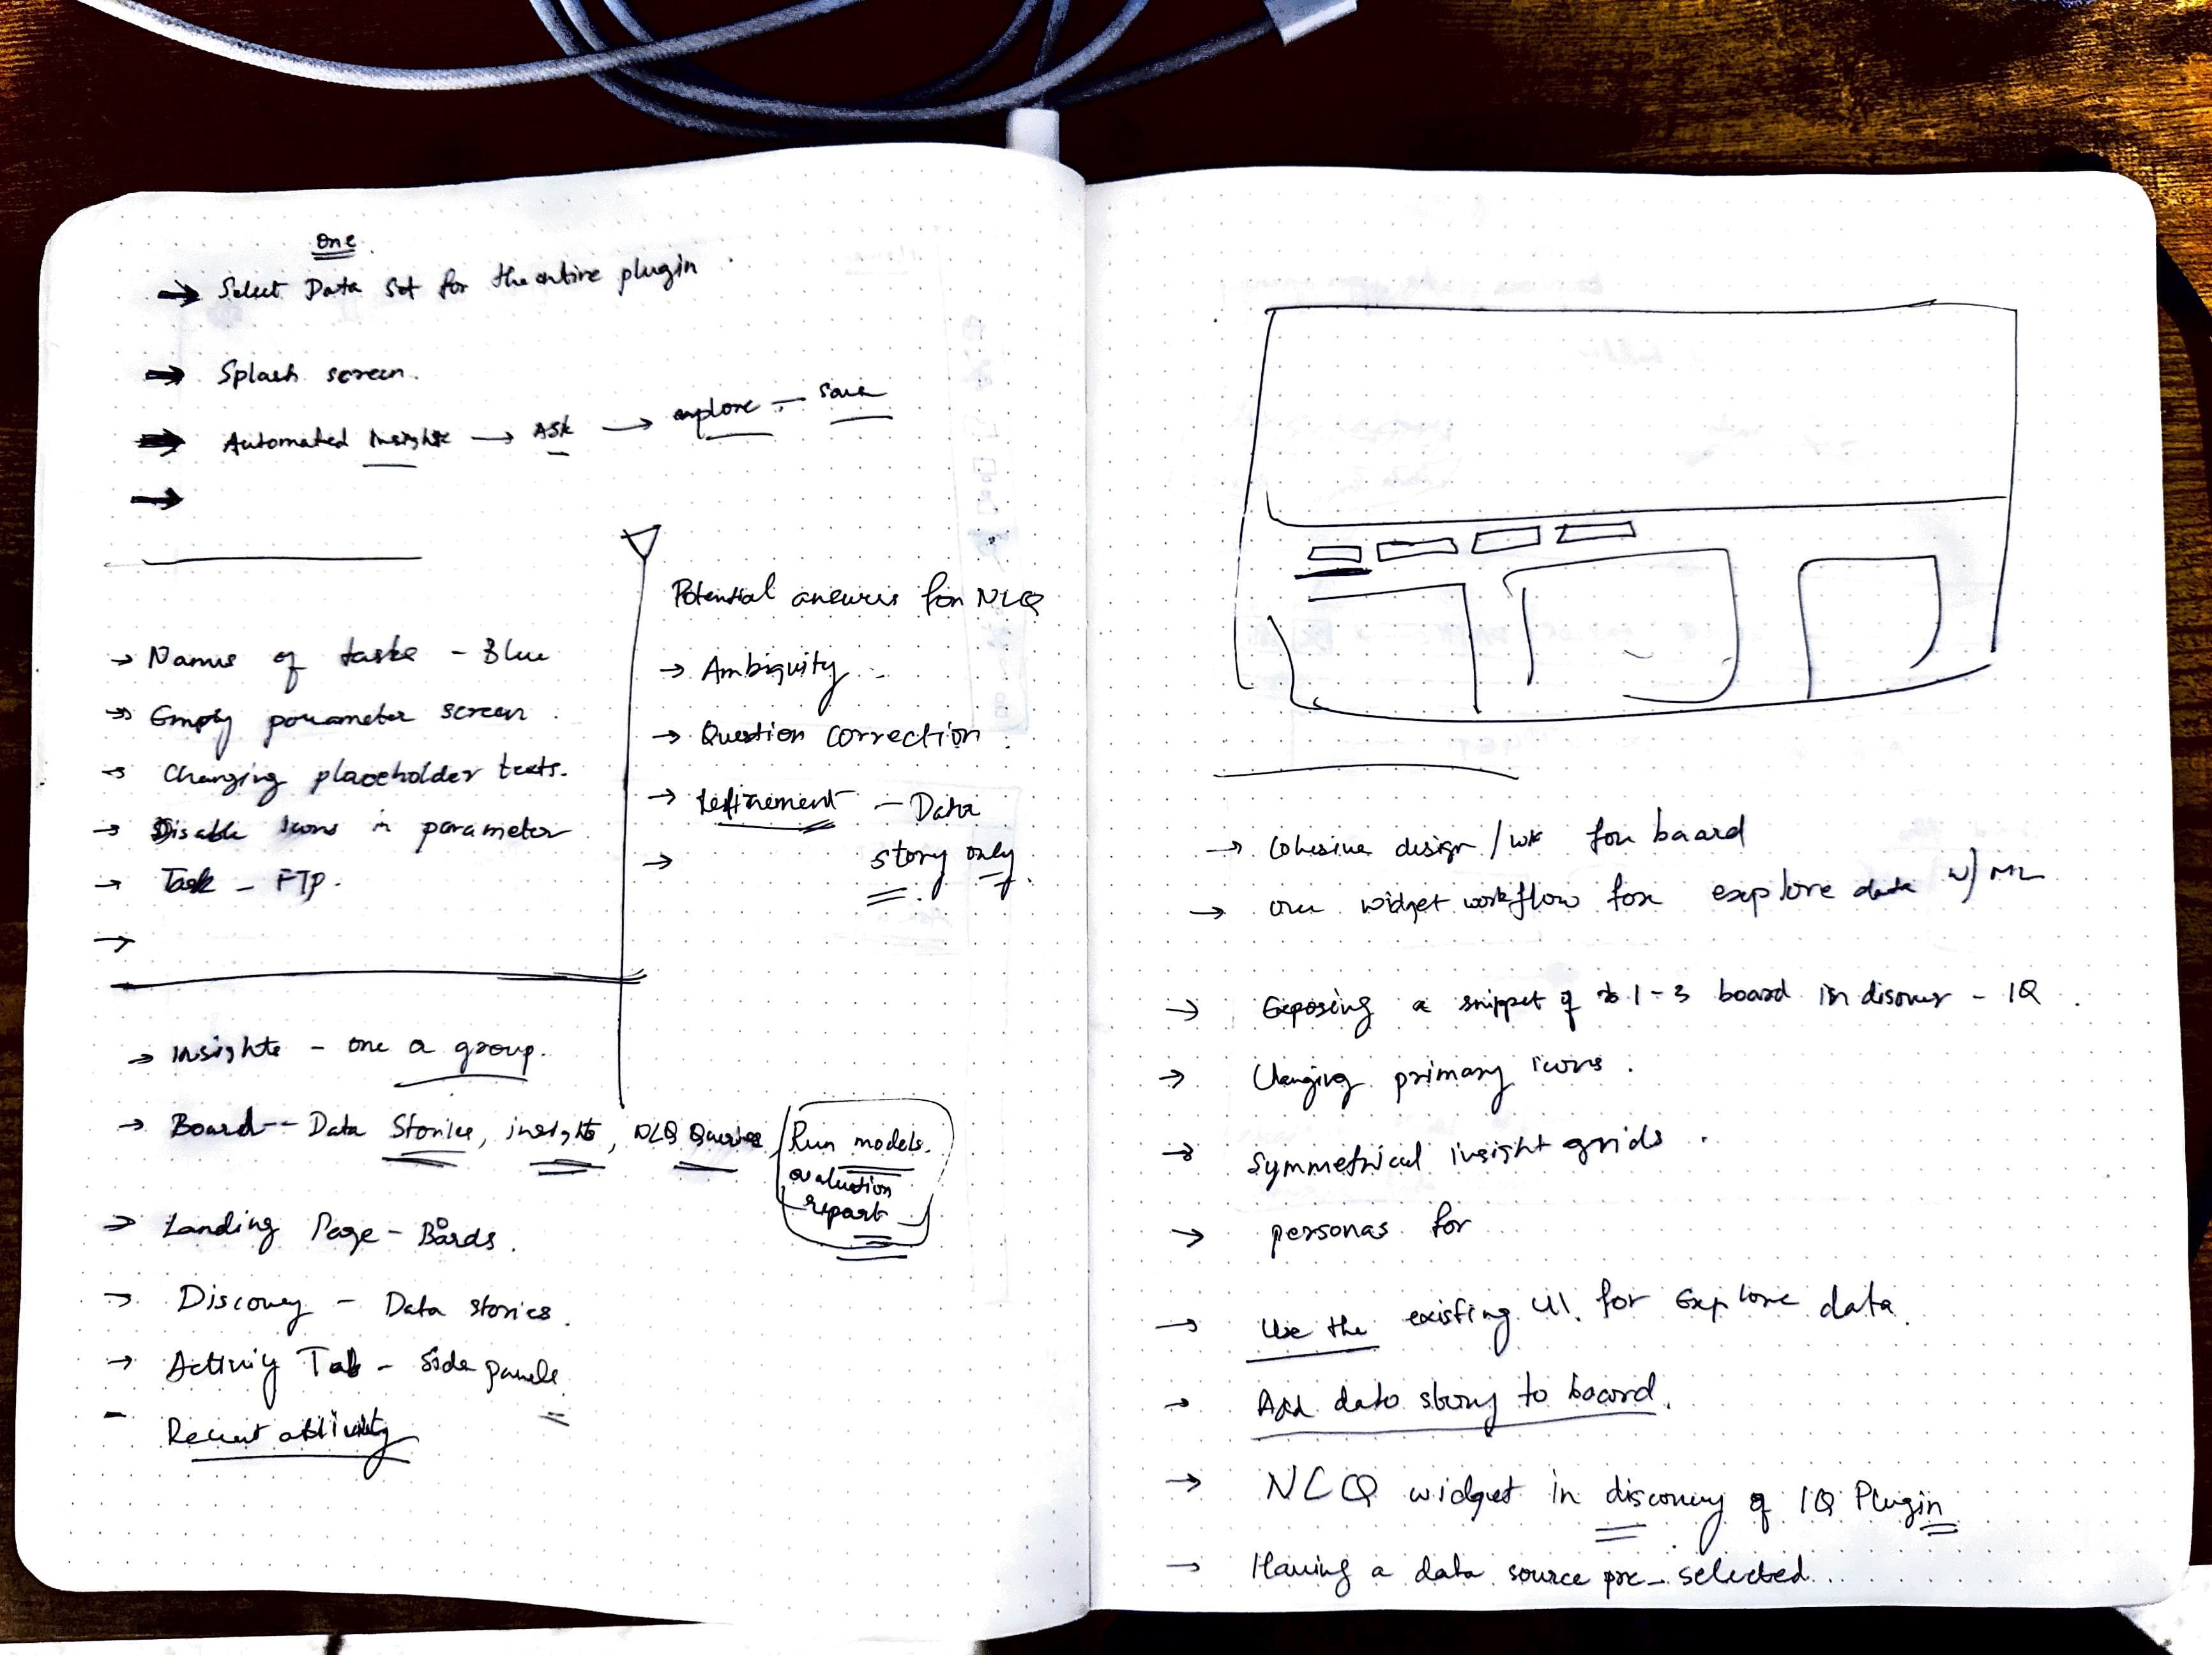 One
→ Select Data Set for the entire plugin
→ Splash screen.
→ Automated Insights → Ask → explore — save
→
→ Names of tasks - Blue
→ Empty parameter screen
→ Changing placeholder texts.
→ Disable icons in parameter
→ Task - FTP.
→
Potential answers for NLQ
→ Ambiguity
→ Question correction
→ Refinement - Data
story only.
→
→ Insights - one a group.
→ Board - Data Stories, insights, NLQ Queries,
Run models.
evaluation
report
→ Landing Page - Boards.
→ Discovery - Data stories.
→ Activiy Tab - Side panels
- Recent activity
→ Cohesive design / wk for board
→ widget workflow for explore data w/ ML
→ Exposing a snippet of 1-3 board in discover - IQ
→ Changing primary icons.
→ Symmetrical insight grids.
→ personas for
→ Use the existing UI. for Explore data.
→ Add data story to board.
→ NLQ widget in discovery of IQ Plugin
→ Having a data source pre-selected...